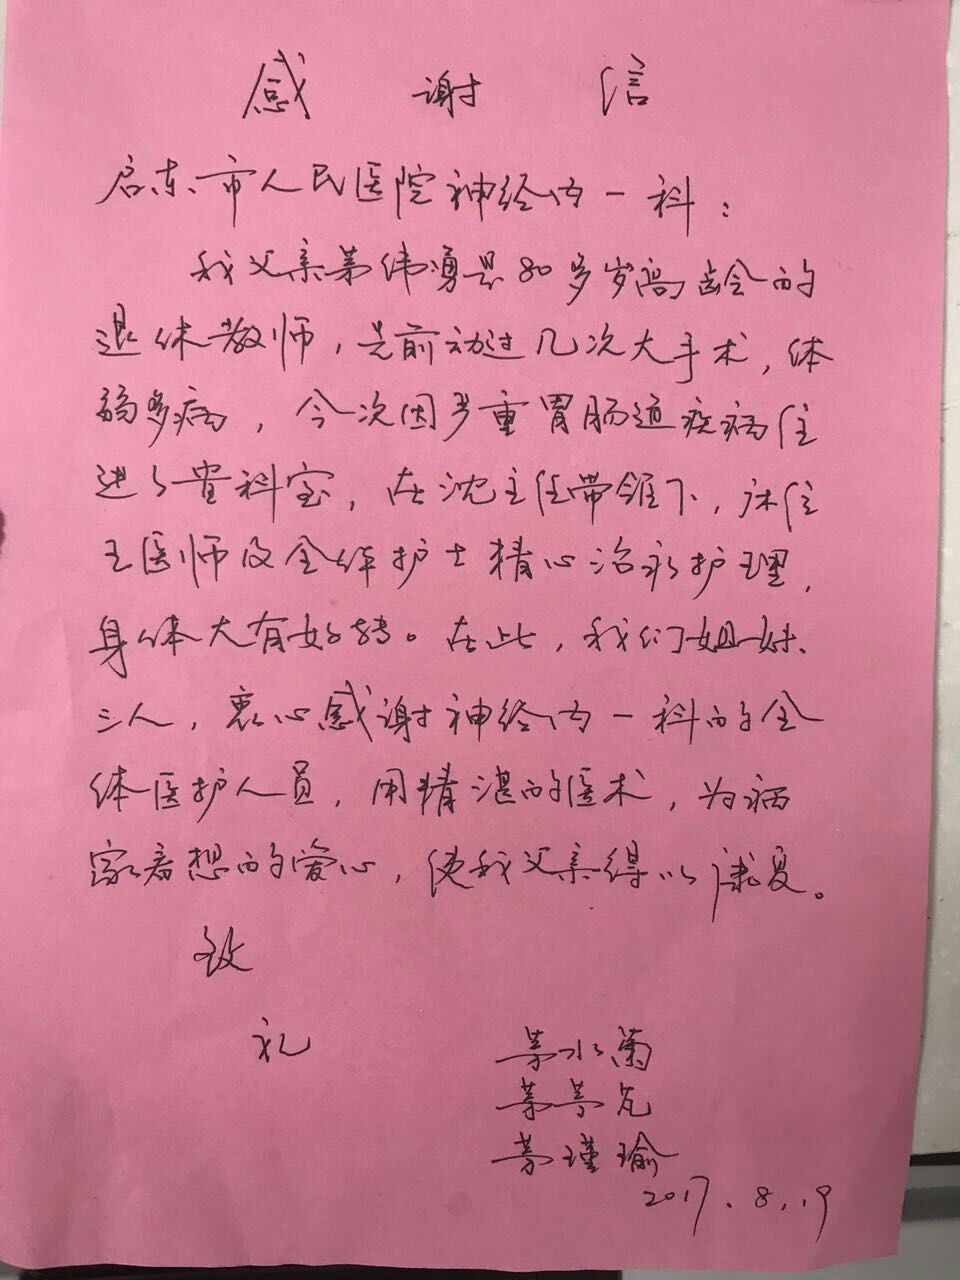 感谢信
启东市人民医院神经内一科：
我父亲茅纬勇是80多岁高龄的
退休教师，先前动过几次大手术，体
弱多病，今次因严重胃肠道疾病住
进了贵科室，在沈主任带领下，床位
主医师及全体护士精心治疗护理，
身体大有好转。在此，我们姐妹
三人，衷心感谢神经内一科的全
体医护人员，用精湛的医术，为病
家着想的爱心，使我父亲得以康复。
致
礼
茅水菊
茅
茅瑾瑜
2017.8.19